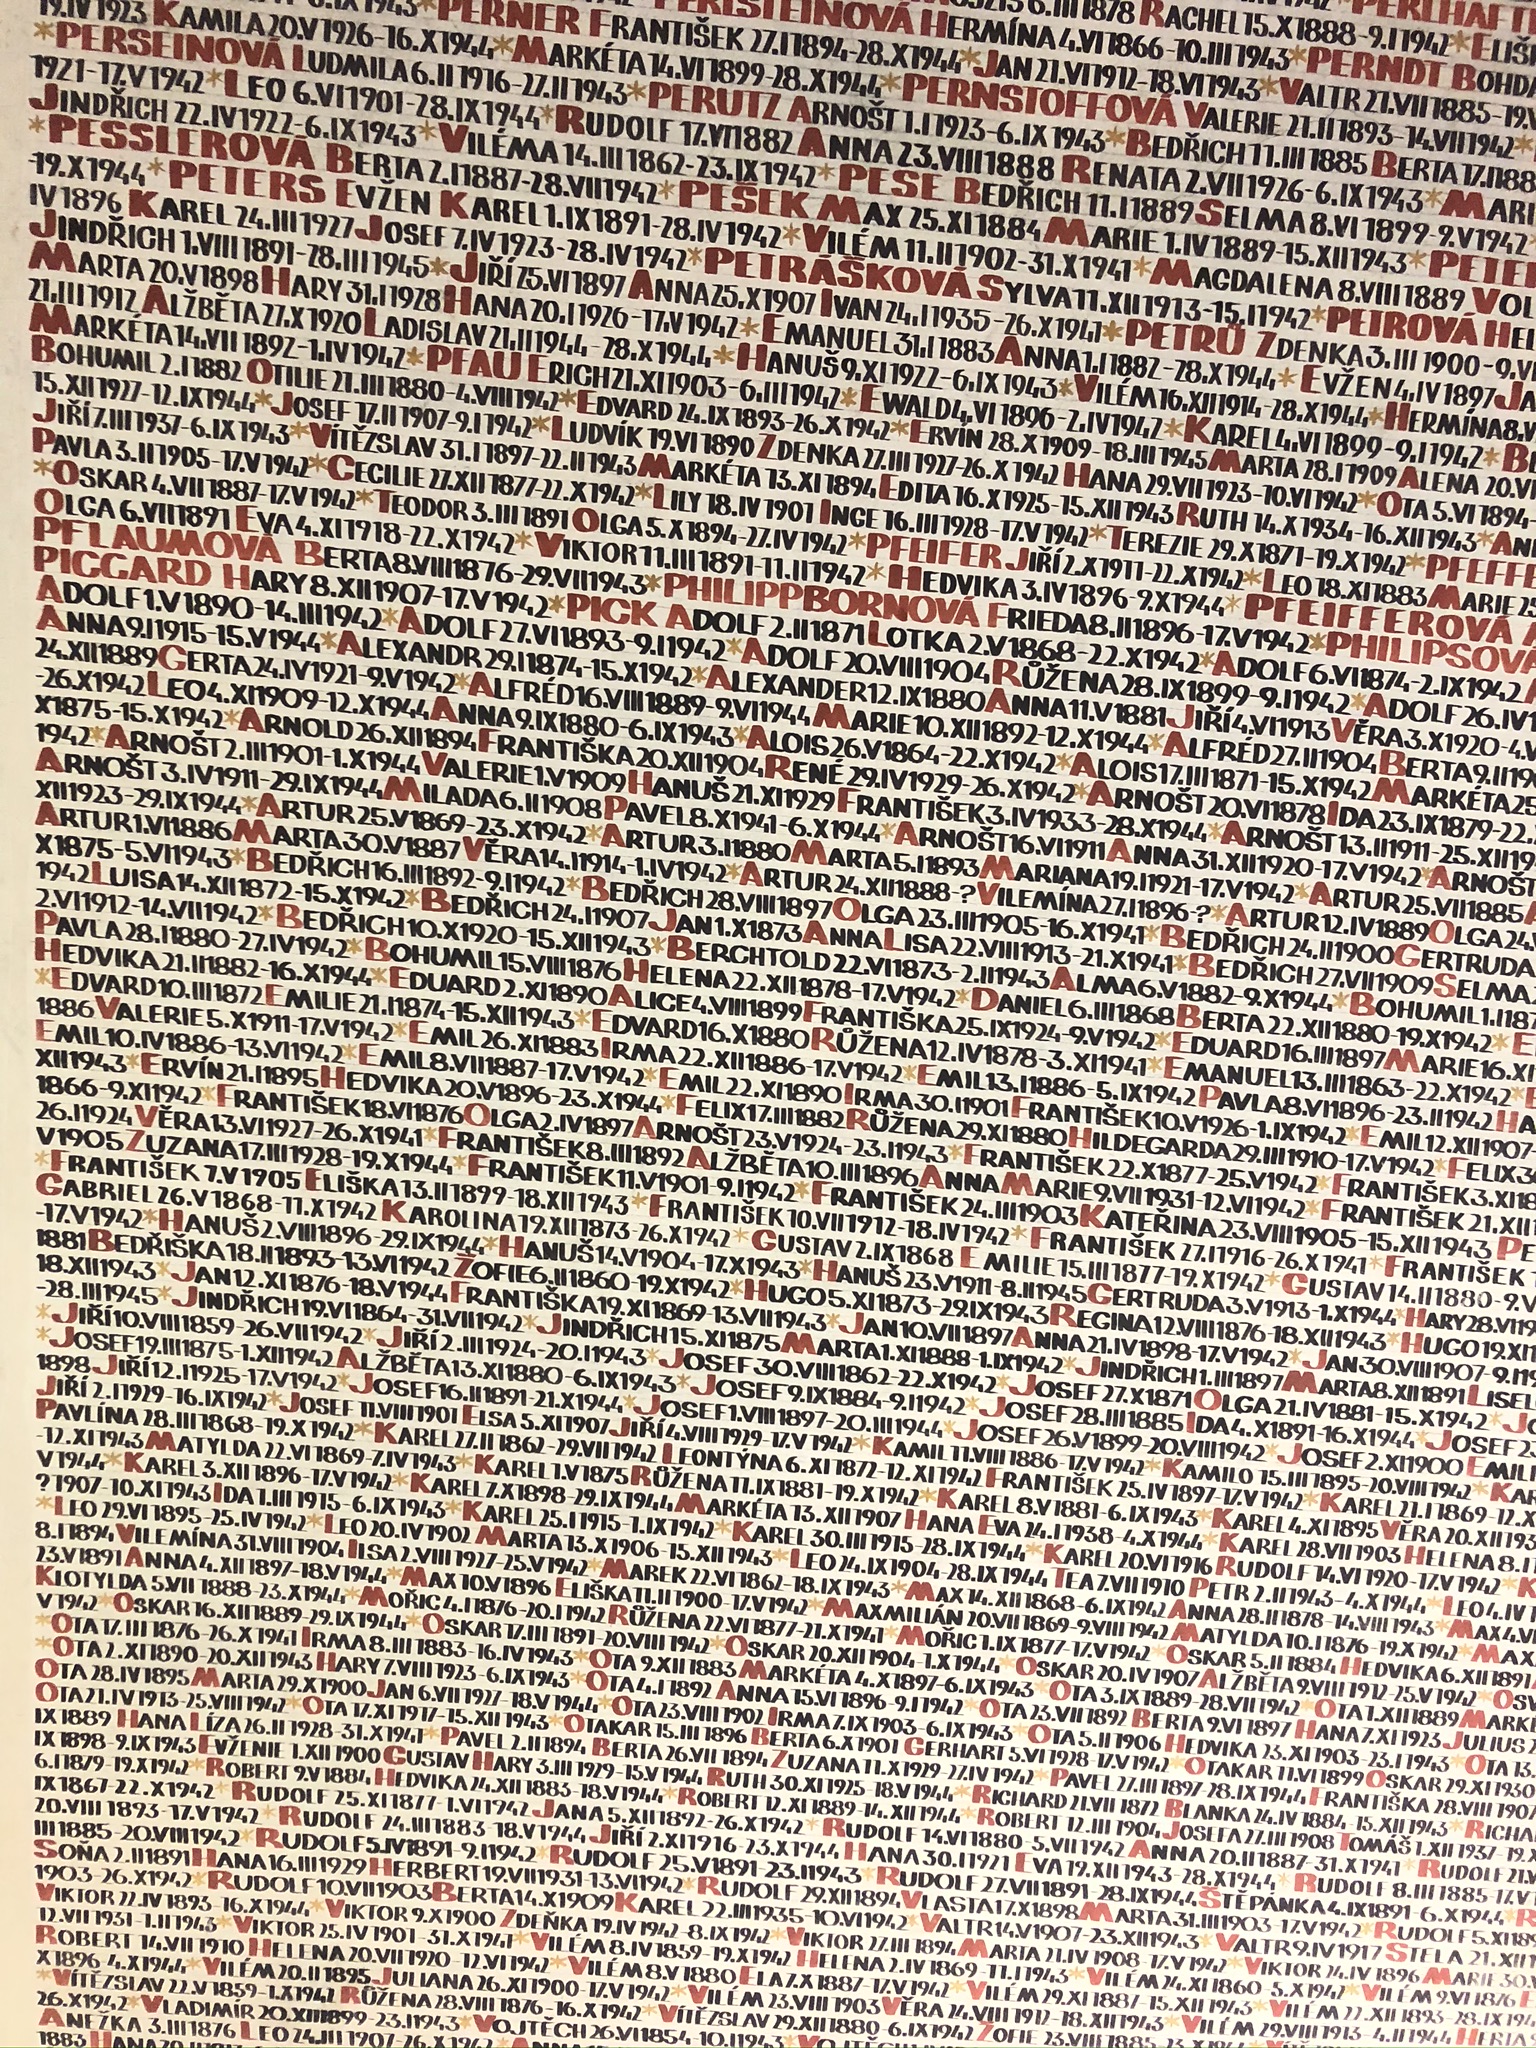 19.IV1923 KAMILA 20.V1926-16.X1944*MARKÉTA 14.VI1899-28.X1944*JAN 21.VI1912-18.VI1943*VALTR 21.VII1885-19.
*PERSEINOVÁ LUDMILA 6.II1916-27.II1943*PERUTZ ARNOŠT 1.I1923-6.IX1943*BEDŘICH 11.III1885 BERTA 17.
1921-17.V1942*LEO 6.VI1901-28.IX1944*RUDOLF 17.VI1882 ANNA 23.VIII1888 RENATA 2.VII1926-6.IX1943*
JINDŘICH 22.IV1922-6.IX1943*VILÉMA 14.III1862-23.IX1942*PESE BEDŘICH 11.I1889 SELMA 8.VI1899-9.V1942*
*PESSLEROVÁ BERTA 2.I1887-28.VII1942*PEŠEK MAX 25.XI1884 MARIE 1.IV1889-15.XII1943*
-19.X1944*PETERS EVŽEN KAREL 1.IX1891-28.IV1942*VILÉM 11.II1902-31.X1941*MAGDALENA 8.VIII1889
IV1896 KAREL 24.III1927 JOSEF 7.IV1923-28.IV1942*PETRÁŠKOVÁ SYLVA 11.XII1913-15.I1942*PETROVÁ
JINDŘICH 1.VIII1891-28.III1945*JIŘÍ 25.VI1897 ANNA 25.X1907 IVAN 24.I1935-26.X1941*PETRŮ ZDENKA 3.III1900-9.
MARTA 20.V1898 HARY 31.I1928 HANA 20.I1926-17.V1942*EMANUEL 31.I1883 ANNA 1.I1882-28.X1944*EVŽEN 4.IV1897
21.III1912 ALŽBĚTA 27.X1920 LADISLAV 21.II1944-28.X1944*HANUŠ 9.XI1922-6.IX1943*VILÉM 16.XII1914-28.X1944*HERMÍNA
MARKÉTA 14.VII1892-1.IV1942*PFAU ERICH 21.XI1903-6.III1942*EWALD 4.VI1896-2.IV1942*KAREL 4.VI1899-9.I1942*
BOHUMIL 2.I1882 OTILIE 21.III1880-4.VIII1942*EDVARD 24.IX1893-26.X1942*ERVÍN 28.X1909-18.III1945 MARTA 28.I1909 ALENA 20.
15.XII1927-12.IX1944*JOSEF 17.II1907-9.I1942*LUDVÍK 19.VI1890 ZDENKA 27.III1927-26.X1942 HANA 29.VIII1923-10.VI1942*OTA 5.VI1894
JIŘÍ 7.III1937-6.IX1943*VÍTĚZSLAV 31.I1897-22.II1943 MARKÉTA 13.XI1894 EDITA 16.X1925-15.XII1943 RUTH 14.X1934-16.XII1943*
PAVLA 3.II1905-17.V1942*CECILIE 27.XII1877-22.X1942*LILY 18.IV1901 INGE 16.III1928-17.V1942*TEREZIE 29.X1871-19.X1942*
*OSKAR 4.VII1887-17.V1942*TEODOR 3.III1891 OLGA 5.X1894-27.IV1942*PFEIFER JIŘÍ 2.X1911-22.X1942*LEO 18.XII1883 MARIE
OLGA 6.VII1891 EVA 4.XI1918-22.X1942*VIKTOR 11.III1891-11.II1942*HEDVIKA 3.IV1896-9.X1944*PFEIFFEROVÁ
PFLAUMOVÁ BERTA 8.VIII1876-29.VII1943*PHILIPPBORNOVÁ FRIEDA 8.II1896-17.V1942*PHILIPSOVÁ
PICCARD HARY 8.XII1907-17.V1942*PICK ADOLF 2.II1871 LOTKA 2.V1868-22.X1942*ADOLF 6.VII1874-2.IX1942
ADOLF 1.V1890-14.III1942*ADOLF 27.VI1893-9.I1942*ADOLF 20.VIII1904 RŮŽENA 28.IX1899-9.I1942*ADOLF 26.
ANNA 9.I1915-15.V1944*ALEXANDR 29.I1874-15.X1942*ALEXANDER 12.IX1880 ANNA 11.V1881 JIŘÍ 4.VI1913 VĚRA 3.X1920-4.
24.XII1889 GERTA 24.IV1921-9.V1942*ALFRÉD 16.VIII1889-9.VI1944 MARIE 10.XII1892-12.X1944*ALFRÉD 27.II1904 BERTA
-26.X1942 LEO 4.XI1909-12.X1944 ANNA 9.IX1880-6.IX1943*ALOIS 26.V1864-22.X1942*ALOIS 17.III1871-15.X1942 MARKÉTA
X1875-15.X1942*ARNOLD 26.XII1894 FRANTIŠKA 20.XII1904 RENÉ 29.IV1929-26.X1942*ARNOŠT 20.VII1878 IDA 23.IX1879-22.
1942*ARNOŠT 2.III1901-1.X1944 VALERIE 1.V1909 HANUŠ 21.XI1929 FRANTIŠEK 3.IV1933-28.X1944*ARNOŠT 13.II1911-25.XII
ARNOŠT 3.IV1911-29.IX1944 MILADA 6.II1908 PAVEL 8.X1941-6.X1944*ARNOŠT 16.VI1911 ANNA 31.XII1920-17.V1942*ARNOŠT
XII1923-29.IX1944*ARTUR 25.V1869-23.X1942*ARTUR 3.I1880 MARTA 5.I1893 MARIANA 19.I1921-17.V1942*ARTUR 25.VII1885
ARTUR 1.VI1886 MARTA 30.V1887 VĚRA 14.I1914-1.IV1942*ARTUR 24.XII1888-? VILEMÍNA 27.I1896-?*ARTUR 12.IV1889 OLGA 24.
X1875-5.VI1943*BEDŘICH 16.III1892-9.I1942*BEDŘICH 28.VIII1897 OLGA 23.III1905-16.X1941*BEDŘICH 24.II1900 GERTRUDA
1942 LUISA 14.XII1872-15.X1942*BEDŘICH 24.I1907 JAN 1.X1873 ANNA LISA 22.VIII1913-21.X1941*BEDŘICH 27.VII1909 SELMA
2.VI1912-14.VII1942*BEDŘICH 10.X1920-15.XII1943*BERCHTOLD 22.VI1873-2.II1943 ALMA 6.V1882-9.X1944*BOHUMIL
PAVLA 28.I1880-27.IV1942*BOHUMIL 15.VIII1876 HELENA 22.XII1878-17.V1942*DANIEL 6.III1868 BERTA 22.XII1880-19.X1942*
HEDVIKA 21.II1882-16.X1944*EDUARD 2.XI1890 ALICE 4.VIII1899 FRANTIŠKA 25.IX1924-9.V1942*EDUARD 16.III1897 MARIE
*EDVARD 10.III1872 EMILIE 21.I1874-15.XII1943*EDVARD 16.X1880 RŮŽENA 12.IV1878-3.XI1941*EMANUEL 13.III1863-22.X1942*
1886 VALERIE 5.X1911-17.V1942*EMIL 26.XI1883 IRMA 22.XII1886-17.V1942*EMIL 13.I1886-5.IX1942 PAVLA 8.VI1896-23.II1942
EMIL 10.IV1886-13.VI1942*EMIL 8.VII1887-17.V1942*EMIL 22.XI1890 IRMA 30.I1901 FRANTIŠEK 10.V1926-1.IX1942*EMIL 12.XII1907-
XII1943*ERVÍN 21.I1895 HEDVIKA 20.V1896-23.X1944*FELIX 17.III1882 RŮŽENA 29.XI1880 HILDEGARDA 29.III1910-17.V1942*FELIX
1866-9.XI1942*FRANTIŠEK 18.VI1876 OLGA 2.IV1897 ARNOŠT 23.V1924-23.I1943*FRANTIŠEK 22.X1877-25.V1942*FRANTIŠEK 3.
26.I1924 VĚRA 13.VI1927-26.X1941*FRANTIŠEK 8.III1892 ALŽBĚTA 10.III1896 ANNA MARIE 9.VII1931-12.VI1942*FRANTIŠEK 21.
V1905 ZUZANA 17.III1928-19.X1944*FRANTIŠEK 11.V1901-9.I1942*FRANTIŠEK 24.III1903 KATEŘINA 23.VIII1905-15.XII1943
*FRANTIŠEK 7.V1905 ELIŠKA 13.II1899-18.XII1943*FRANTIŠEK 10.VII1912-18.IV1942*FRANTIŠEK 27.I1916-26.X1941*FRANTIŠEK
GABRIEL 26.V1868-11.X1942 KAROLINA 19.XII1873-26.X1942*GUSTAV 2.IX1868 EMILIE 15.III1877-19.X1942*GUSTAV 14.II1880-9.
-17.V1942*HANUŠ 2.VIII1896-29.IX1944*HANUŠ 14.V1904-17.X1943*HANUŠ 23.V1911-8.II1945 GERTRUDA 3.V1913-1.X1944*HARY
1881 BEDŘIŠKA 18.II1893-13.VI1942 ŽOFIE 6.II1860-19.X1942*HUGO 5.XI1873-29.IX1943 REGINA 12.VIII1876-18.XII1943*HUGO
18.XII1943*JAN 12.XI1876-18.V1944 FRANTIŠKA 19.XI1869-13.VII1943*JAN 10.VII1897 ANNA 21.IV1898-17.V1942*JAN 30.VIII1907-
-28.III1945*JINDŘICH 19.VI1864-31.VIII1942*JINDŘICH 15.XI1875 MARTA 1.XI1888-1.IX1942*JINDŘICH 1.III1897 MARTA 8.XII1891
*JIŘÍ 10.VIII1859-26.VII1942*JIŘÍ 2.III1924-20.I1943*JOSEF 30.VIII1862-22.X1942*JOSEF 27.X1871 OLGA 21.IV1881-15.X1942
*JOSEF 19.III1875-1.XII1942 ALŽBĚTA 13.XI1880-6.IX1943*JOSEF 9.IX1884-9.I1942*JOSEF 28.III1885 IDA 4.X1891-16.X1944*JOSEF
1898 JIŘÍ 12.I1925-17.V1942*JOSEF 16.II1891-21.X1944*JOSEF 1.VIII1897-20.III1944*JOSEF 26.V1899-20.VIII1942*JOSEF 2.XI1900
JIŘÍ 2.I1929-16.IX1942*JOSEF 11.VIII1901 ELSA 5.XI1907 JIŘÍ 4.VIII1929-17.V1942*KAMIL 11.VIII1886-17.V1942*KAMILO 15.III1895-20.VIII1942*
PAVLÍNA 28.III1868-19.X1942*KAREL 27.II1862-29.VII1942 LEONTÝNA 6.XI1872-12.XI1942 FRANTIŠEK 25.IV1897-17.V1942*KAREL 21.I1869-
-12.XI1943 MATYLDA 22.VI1869-7.IV1943*KAREL 1.V1875 RŮŽENA 11.IX1881-19.X1942*KAREL 8.V1881-6.IX1943*KAREL 4.XI1895 VĚRA
V1944*KAREL 3.XII1896-17.V1942*KAREL 7.X1898-29.IX1944 MARKÉTA 13.XII1907 HANA EVA 24.I1938-4.X1944*KAREL 28.VII1903 HELENA
?1907-10.XI1943 IDA 1.III1915-6.IX1943*KAREL 25.I1915-1.IX1942*KAREL 30.III1915-28.IX1944*KAREL 20.VI1916 RUDOLF 14.VI1920-17.V1942*
*LEO 29.VI1895-25.IV1942*LEO 20.IV1902 MARTA 13.X1906-15.XII1943*LEO 24.IX1904-28.IX1944 TEA 7.VII1910 PETR 2.II1943-4.X1944*LEO
8.I1894 VILEMÍNA 31.VIII1904 ILSA 2.VIII1927-25.V1942*MAREK 22.VI1862-18.IX1943*MAX 14.XII1868-6.IX1942 ANNA 28.II1878-14.VIII1943*MAX
23.V1891 ANNA 4.XII1897-18.V1944*MAX 10.V1896 ELIŠKA 11.II1900-17.V1942*MAXMILIÁN 20.VII1869-9.VIII1942 MATYLDA 10.I1876-19.X1942*
KLOTYLDA 5.VII1888-23.X1944*MOŘIC 4.I1876-20.I1942 RŮŽENA 22.VI1877-21.X1941*MOŘIC 1.IX1877-17.V1942*OSKAR 5.II1884 HEDVIKA
V1942*OSKAR 16.XII1889-29.IX1944*OSKAR 17.III1891-20.VIII1942*OSKAR 20.XI1904-1.X1944*OSKAR 20.IV1907 ALŽBĚTA 9.VIII1912-25.V1942*
*OTA 17.III1876-26.X1941 IRMA 8.III1883-16.IV1943*OTA 9.XII1883 MARKÉTA 4.X1897-6.IX1943*OTA 3.IX1889-28.VII1942*OTA 1.XII1889
*OTA 2.XI1890-20.XII1943 HARY 7.VIII1923-6.IX1943*OTA 4.I1892 ANNA 15.VI1896-9.I1942*OTA 23.VII1892 BERTA 9.VI1897 HANA 7.XI1923 JULIUS
OTA 28.IV1895 MARTA 29.X1900 JAN 6.VII1927-18.V1944*OTA 23.VIII1902 IRMA 7.IX1903-6.IX1943*OTA 5.II1906 HEDVIKA 23.XI1903-23.I1943*OTA
OTA 21.IV1913-25.VIII1942*OTA 17.XI1917-15.XII1943*OTAKAR 15.III1896 BERTA 6.X1901 GERHART 5.VI1928-17.V1942*OTAKAR 11.VI1899 OSKAR
IX1889 HANA LÍZA 26.II1928-31.X1941*PAVEL 2.II1894 BERTA 26.VII1894 ZUZANA 11.X1929-27.IV1942*PAVEL 27.III1897-28.IX1944 FRANTIŠKA
IX1898-9.IX1943 EVŽENIE 1.XII1900 GUSTAV HARY 3.III1929-15.V1944 RUTH 30.XI1925-18.V1944*RICHARD 21.VII1872 BLANKA 24.IV1884-15.XII1943*
6.I1879-19.X1942*ROBERT 9.V1884 HEDVIKA 24.XII1883-18.V1944*ROBERT 12.XI1889-14.XII1944*ROBERT 12.III1904 JOSEFA 27.III1908 TOMÁŠ
IX1867-22.X1942*RUDOLF 25.XI1877-1.VI1942 JANA 5.XII1892-26.X1942*RUDOLF 14.VI1880-5.VII1942 ANNA 20.III1887-31.X1941*RUDOLF
20.VIII1893-17.V1942*RUDOLF 24.III1883-18.V1944 JIŘÍ 2.XI1916-23.X1944 HANA 30.I1921 EVA 19.XII1943-28.X1944*RUDOLF 8.III1885-
III1885-20.VIII1942*RUDOLF 5.IV1891-9.I1942*RUDOLF 25.V1891-23.I1943*RUDOLF 27.VII1891-28.IX1944 ŠTĚPÁNKA 4.IX1891-6.X1944*
SOŇA 2.II1891 HANA 16.III1929 HERBERT 19.VII1931-13.VI1942*RUDOLF 29.XII1894 VLASTA 17.X1898 MARTA 31.III1903-17.V1942*RUDOLF
1903-26.X1942*RUDOLF 10.VII1903 BERTA 14.X1909 KAREL 22.III1935-10.VI1942*VALTR 14.V1907-23.XII1943*VALTR 9.IV1917 STELA
VIKTOR 22.IV1893-16.X1944*VIKTOR 9.X1900 ZDEŇKA 19.IV1942-8.IX1942*VIKTOR 27.III1894 MARIA 21.IV1908-17.V1942*VIKTOR 24.IV1896
12.VII1931-1.II1943*VIKTOR 25.IV1901-31.X1941*VILÉM 8.IV1859-19.X1942 HELENA 2.IV1869-11.I1943*VILÉM 24.XI1860-5.X1942*VILÉM
ROBERT 14.VII1910 HELENA 20.VII1920-12.VI1942*VILÉM 8.V1880 ELA 7.X1887-17.V1942*VILÉM 29.XI1887-15.XII1943*VILÉM
X1896-4.X1944*VILÉM 20.II1895 JULIANA 26.XI1900-17.V1942*VILÉM 23.VIII1903 VĚRA 24.VIII1912-18.XII1943*VILÉM 29.VIII1913-4.II1944
*VÍTĚZSLAV 22.V1859-1.X1942 RŮŽENA 28.VIII1876-16.X1942*VÍTĚZSLAV 29.XII1880-6.IX1942 ZOFIE
26.X1942*VLADIMÍR 20.XII1899-23.I1943*VOJTĚCH 26.VI1854-10.I1943
ANEŽKA 3.III1876 LEO 24.III1907-26.X1942
1883 HANA